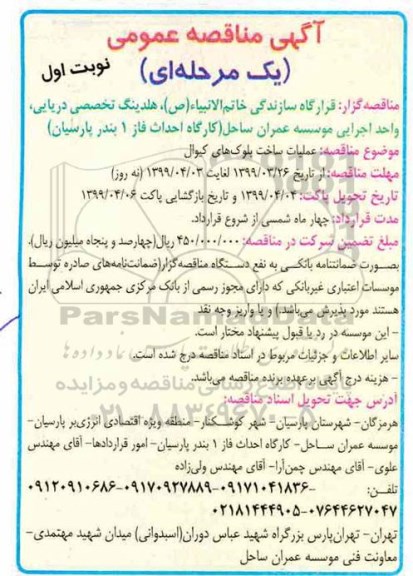 آگهی مناقصه عمومی
(یک مرحله‌ای)
نوبت اول
مناقصه‌گزار: قرارگاه سازندگی خاتم‌الانبیاء(ص)، هلدینگ تخصصی دریایی،
واحد اجرایی موسسه عمران ساحل(کارگاه احداث فاز ۱ بندر پارسیان)
موضوع مناقصه: عملیات ساخت بلوک‌های کیوال
مهلت مناقصه: از تاریخ ۱۳۹۹/۰۳/۲۶ لغایت ۱۳۹۹/۰۴/۰۳ (نه روز)
تاریخ تحویل پاکت: ۱۳۹۹/۰۴/۰۴ و تاریخ بازگشایی پاکت ۱۳۹۹/۰۴/۰۶
مدت قرارداد: چهار ماه شمسی از شروع قرارداد.
مبلغ تضمین شرکت در مناقصه: ۴۵۰/۰۰۰/۰۰۰ ریال(چهارصد و پنجاه میلیون ریال)،
بصورت ضمانتنامه بانکی به نفع دستگاه مناقصه‌گزار(ضمانت‌نامه‌های صادره توسط
موسسات اعتباری غیربانکی که دارای مجوز رسمی از بانک مرکزی جمهوری اسلامی ایران
هستند مورد پذیرش می‌باشد.) و یا واریز وجه نقد
- این موسسه در رد یا قبول پیشنهاد مختار است.
سایر اطلاعات و جزئیات مربوط در اسناد مناقصه درج شده است.
- هزینه درج آگهی برعهده برنده مناقصه می‌باشد.
آدرس جهت تحویل اسناد مناقصه:
هرمزگان- شهرستان پارسیان- شهر کوشکنار- منطقه ویژه اقتصادی انرژی‌بر پارسیان-
موسسه عمران ساحل- کارگاه احداث فاز ۱ بندر پارسیان- امور قراردادها- آقای مهندس
علوی- آقای مهندس چمن‌آرا- آقای مهندس ولی‌زاده
تلفن: ۰۹۱۷۱۰۴۱۸۳۶-۰۹۱۷۰۹۲۷۸۸۹-۰۹۱۲۰۹۱۰۶۸۶-
۰۲۱۸۱۴۴۴۹۰۵-۰۷۶۴۴۶۲۷۰۴۷
تهران- تهران‌پارس بزرگراه شهید عباس دوران(اسبدوانی) میدان شهید مهتمدی-
معاونت فنی موسسه عمران ساحل
ParsNamadData
۰۲۱-۸۸۳۴۹۶۷۰-۵